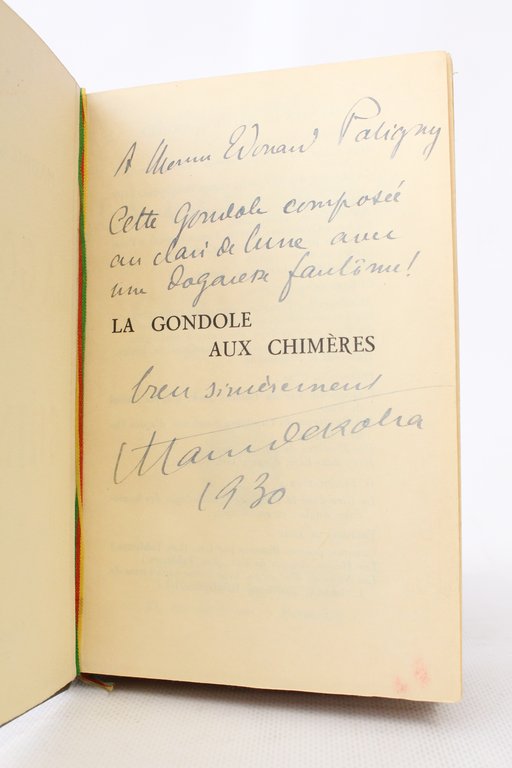 A Monsieur Edouard Patigny
Cette Gondole composée
au clair de lune avec
une dogaresse fantôme!
LA GONDOLE
AUX CHIMÈRES
bien sincèrement
Maurice Dekobra
1930